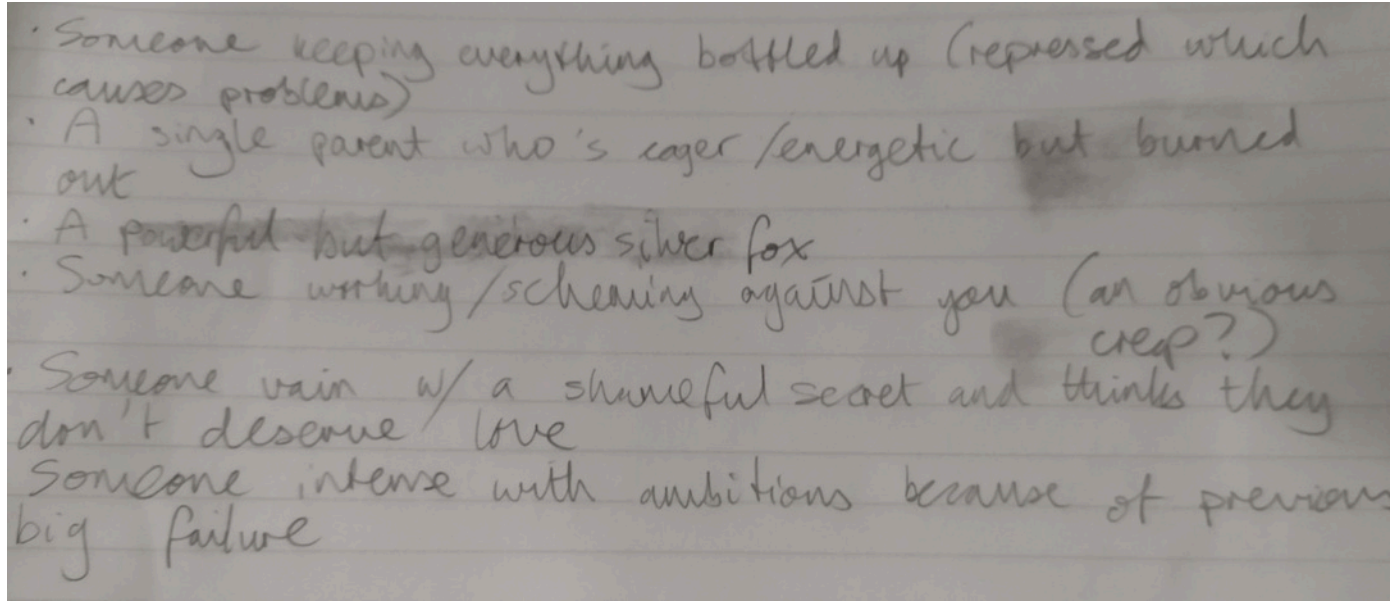 · Someone keeping everything bottled up (repressed which
causes problems)
· A single parent who's eager/energetic but burned
out
· A powerful but generous silver fox
· Someone working/scheming against you (an obvious
creep?)
· Someone vain w/ a shameful secret and thinks they
don't deserve love
Someone intense with ambitions because of previous
big failure